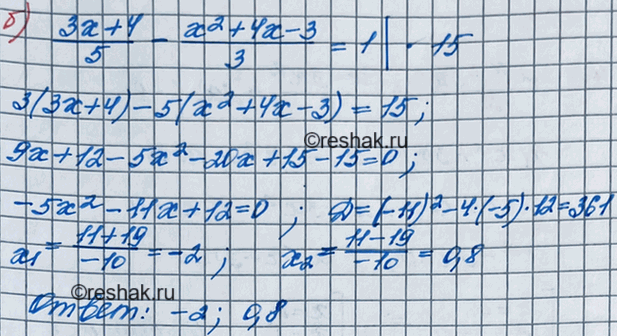 б) (3x+4)/5 - (x²+4x-3)/3 = 1 | · 15
3(3x+4)-5(x²+4x-3)=15;
©reshak.ru
9x+12-5x²-20x+15-15=0;
-5x²-11x+12=0 ; D=(-11)²-4·(-5)·12=361
x₁=(11+19)/(-10)=-2; x₂=(11-19)/(-10)=0,8
©reshak.ru
Ответ: -2; 0,8